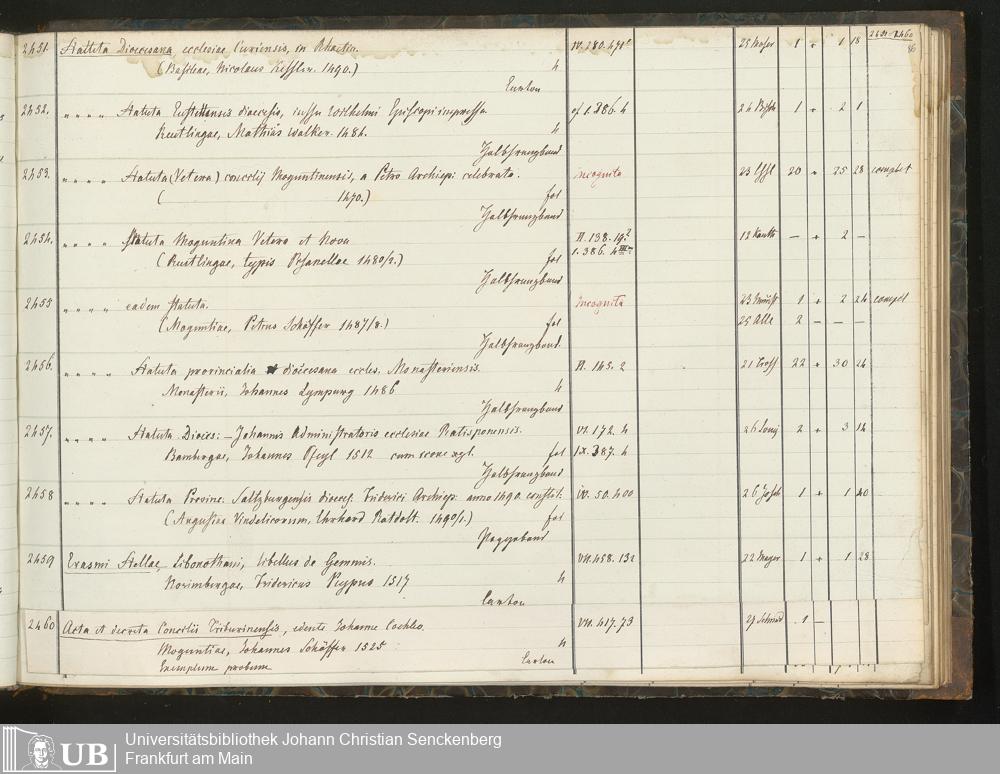 2451. Statuta Dioecesana ecclesiae Curiensis, in Rhaetia. IV. 280. 1 + 1 18 2451-2460
(Basileae, Nicolaus Kessler. 1490.) 4
Carton
2452. " " " " Statuta Eystettensis dioecesis, iussu Wilhelmi Episcopi impressa. cf 1. 386. 4 24 1 + 2 1
Reutlingae, Mathias Walker. 1484. 4
Halbfranzband
2453. " " " " Statuta (Vetera) concilij Moguntinensis, a Petro Archiepi: celebrata. incognita 23 20 " 25 28 complet
( 1470.) fol
Halbfranzband
2454. " " " " Statuta Moguntina Vetera et Nova II. 138. 19 — + 2 —
(Reutlingae, typis 1480/2.) fol 1. 386. 4
Halbfranzband
2455 " " " " eadem statuta. incognita 23 1 + 2 24
(Moguntiae, Petrus Schöffer 1487/8.) fol 25 2 — — —
Halbfranzband.
2456. " " " " Statuta provincialia et dioecesana eccles. Monasteriensis. II. 145. 2 21 22 + 30 24
Monasterii, Johannes Lympurg 1486 4
Halbfranzband
2457. " " " " Statuta Dioces: Johannis Administratoris ecclesiae Ratisponensis. VI. 172. 4 26 2 + 3 14
Bambergae, Johannes Pfeyl 1512 cum icone xyl. fol IX. 387. 4
Halbfranzband
2458 " " " " Statuta Provinc. Saltzburgensis dioeces. Friderici Archiep. anno 1490 constit. IV. 50. 400 26 1 + 1 40
(Augustae Vindelicorum, Erhard Ratdolt. 1490/1.) fol
Pappband
2459 Erasmi Stellae, Libonothani, libellus de Gemmis. VII. 458. 132 22 Mayer 1 + 1 28
Norimbergae, Fridericus Peypus 1517 4
Carton
2460 Acta et decreta Concilii Triburinensis, edente Johanne Cochleo. VII. 417. 73 29 Schmid 1 —
Moguntiae, Johannes Schöffer 1525 4
Exemplum probum Carton
UB Universitätsbibliothek Johann Christian Senckenberg
Frankfurt am Main